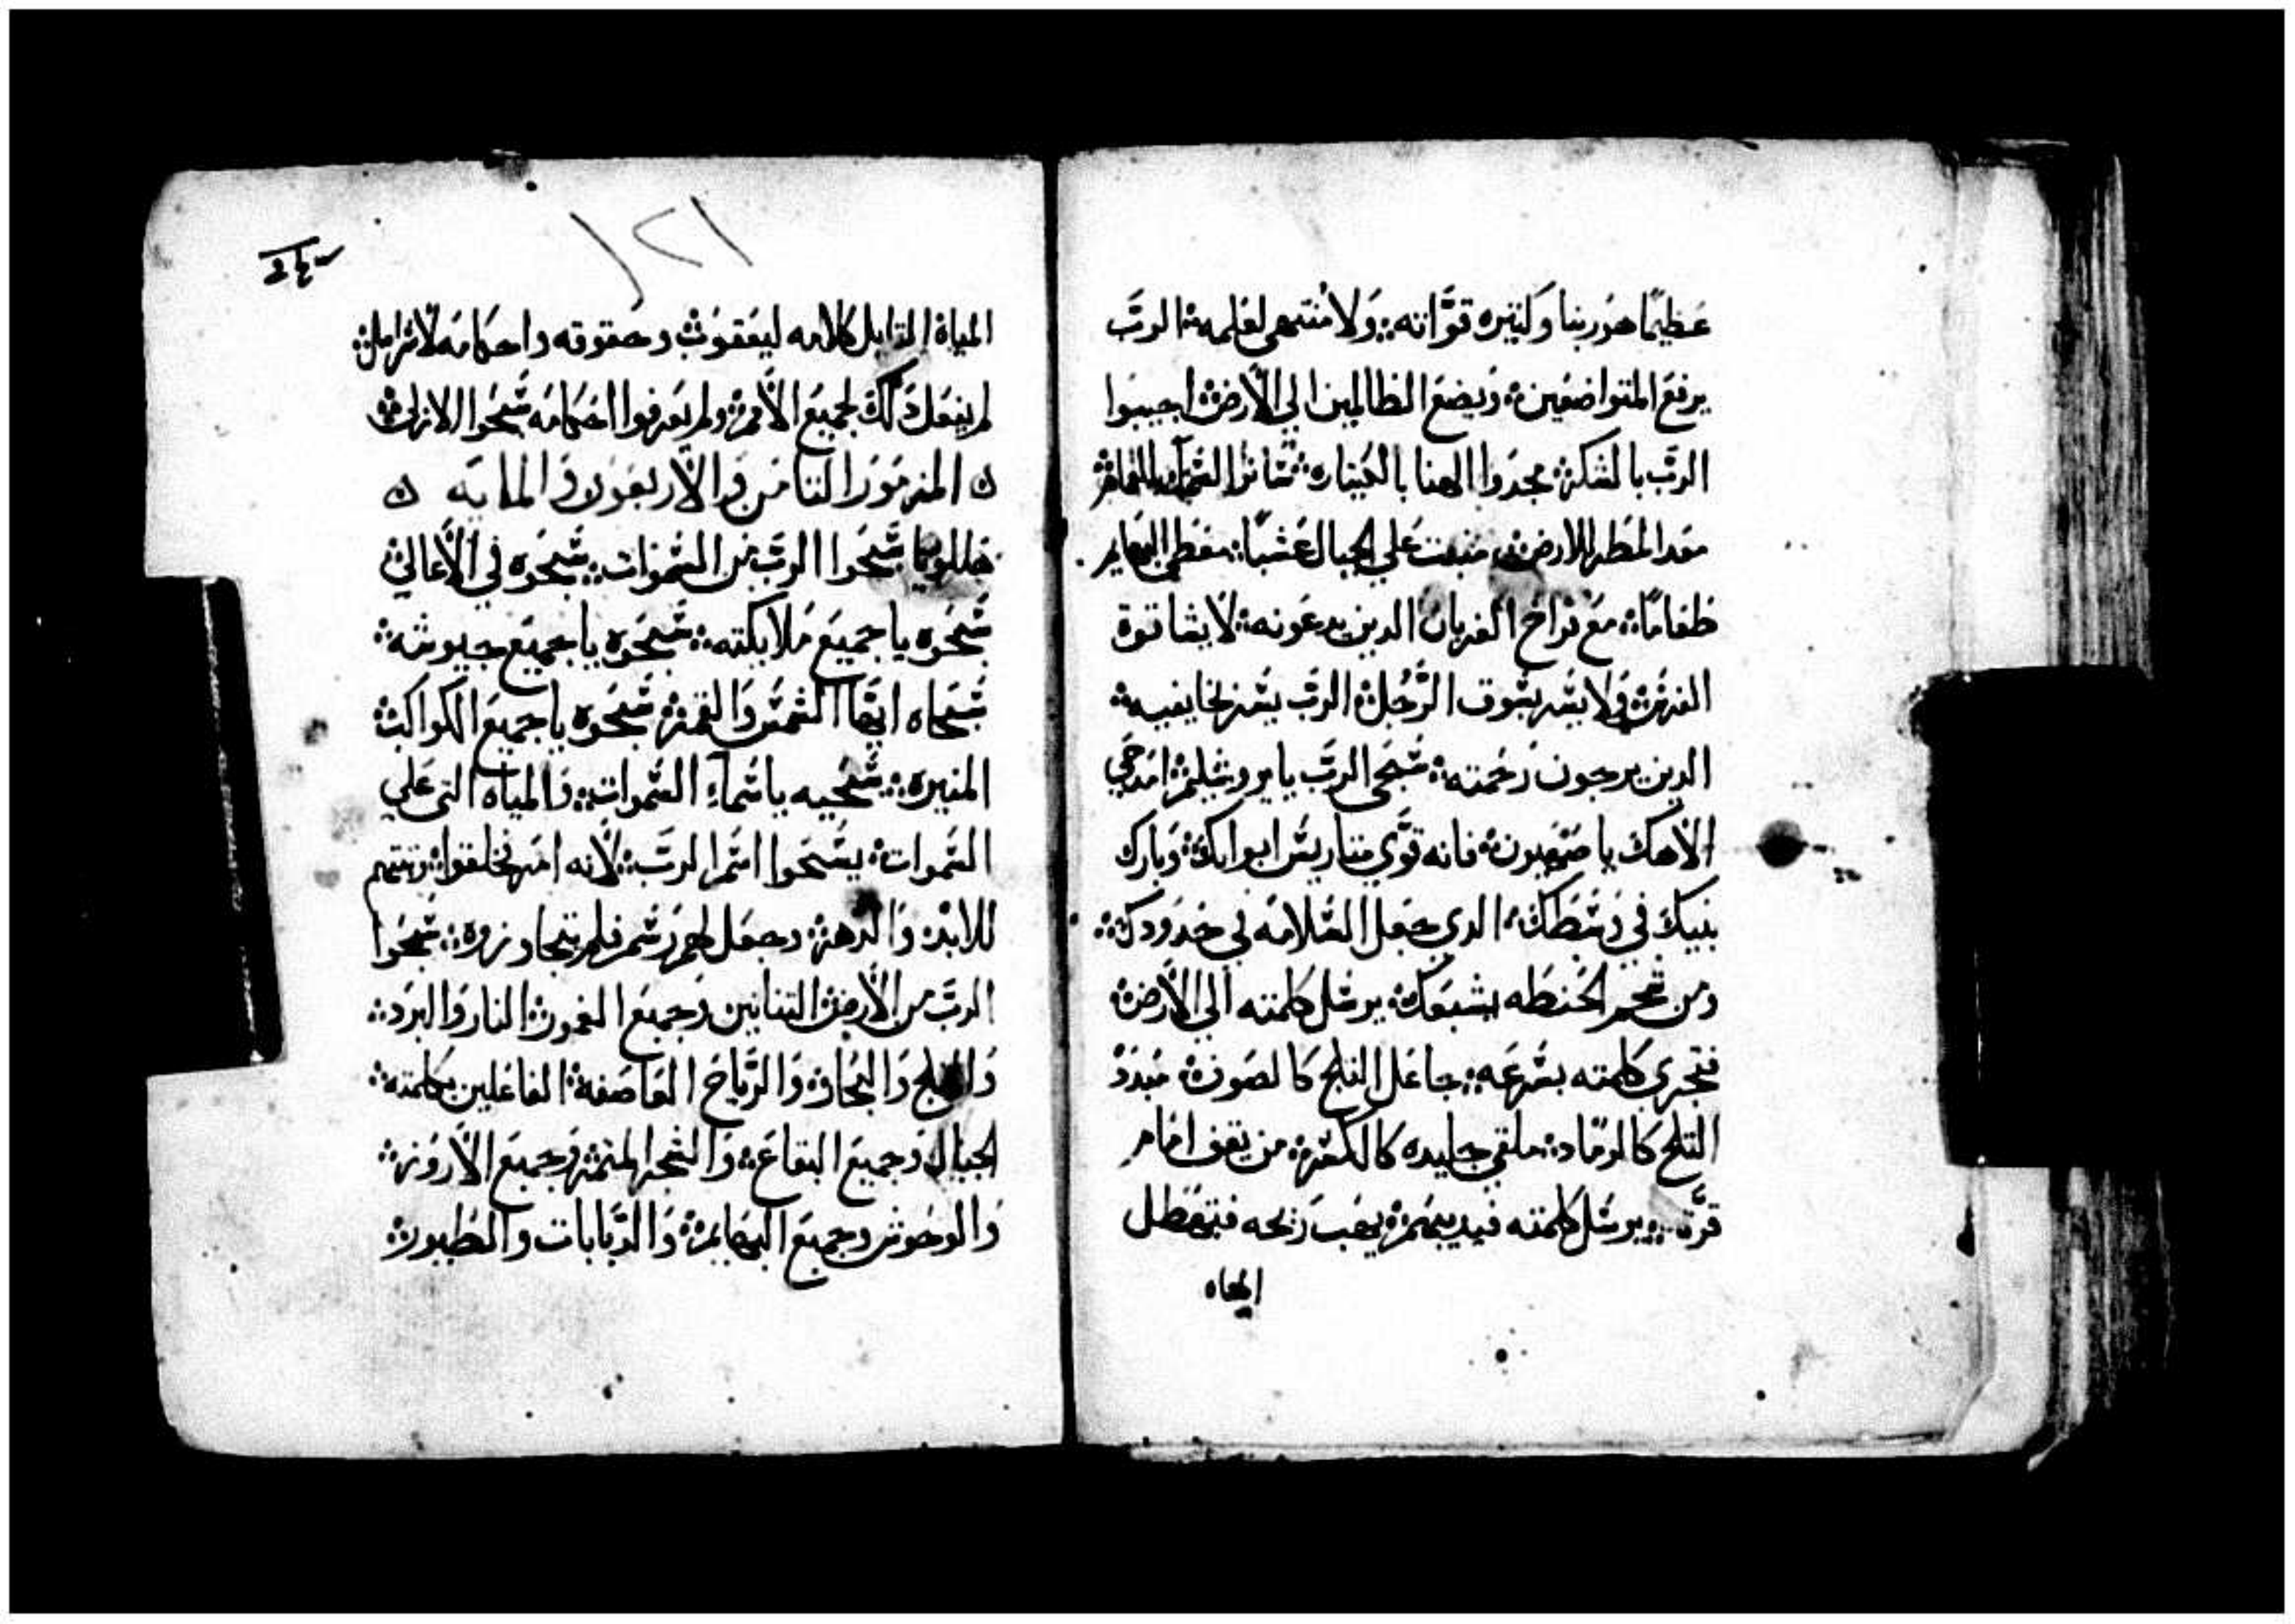 عظيمًا هو ربنا وكثيره قوّاته ولا منتهى لعلمه الربّ
يرفع المتواضعين ويضع الظالمين الي الأرض اجيبوا
الربّ بالشكر مجدوا الهنا بالكيناره ساتر السما بالغمام
معد المطر للارض منبت علي الجبال عشبًا معطي البهايم
طعامًا مع فراخ الغربان الدين يدعونه لا يشا قوة
الفرس ولا يسر بسوق الرَّجُل الربّ يسر بخايفيه
الدين يرجون رحمته سبحي الربّ يا يروشليم امدحي
الاهك يا صهيون فانه قوّي متاريس ابوابك وبارك
بنيك في وسطك الدي جعل السلامه في حدودك
ومن شحم الحنطه اشبعك يرسل كلمته الي الأرض
فتجري كلمته بسرعه جاعل التلج كالصوف مبدد
التلج كالرمّاد ملقي جليده كالكسر من يقف امام
قرّه يرسل كلمته فيديبهم يهب ريحه فتهطل
المياه
١٢١
المياه القايل كلامه ليعقوب وحقوقه واحكامه لأسرايل
لم يفعل دلك لجميع الأمم ولم يعرفوا احكامه سبحوا الازلي
ه المزمور التامن والأربعون والمايه ه
هللويا سبحوا الربّ من السموات سبحوه في الأعالي
سبحوه يا جميع ملايكته سبحوه يا جميع جيوشه
سبحاه ايها الشمس والقمر سبحوه يا جميع الكواكب
المنيره سبحيه يا سمآء السموات والمياه التي علي
السموات يسبحوا اسم الربّ لأنه امر فخلقوا وتبتهم
للابد والدهر وجعل لهم رسم فلم تتجاوزوه سبحوا
الربّ من الأرض التنانين وجميع الغمور النار والبرد
والتلج والبخار والرّياح العاصفه الفاعلين بكلمته
الجبال وجميع البقاع والشجر المتمر وجميع الأروز
والوحوش وجميع البهايم والدبابات والطيور